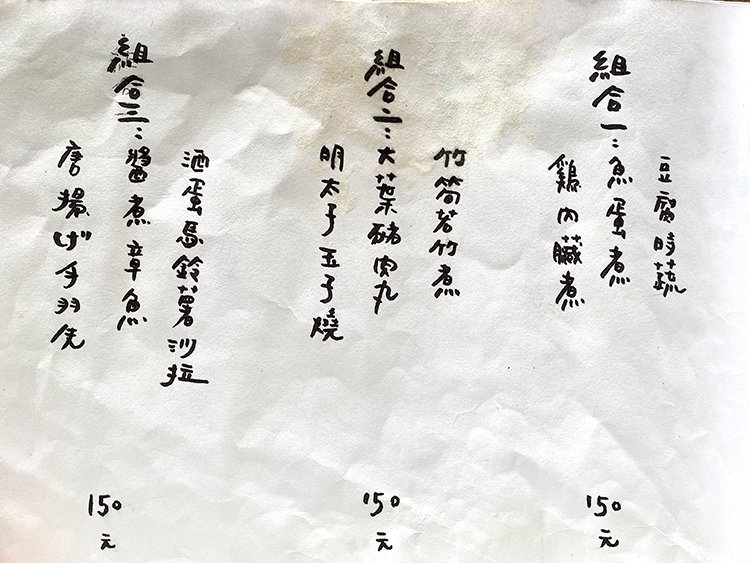 豆腐時蔬
組合一：魚蛋煮
鷄內臟煮
150元
竹筍若竹煮
組合二：大葉豬肉丸
明太子玉子燒
150元
酒蛋馬鈴薯沙拉
組合三：醬煮章魚
唐揚げ手羽先
150元